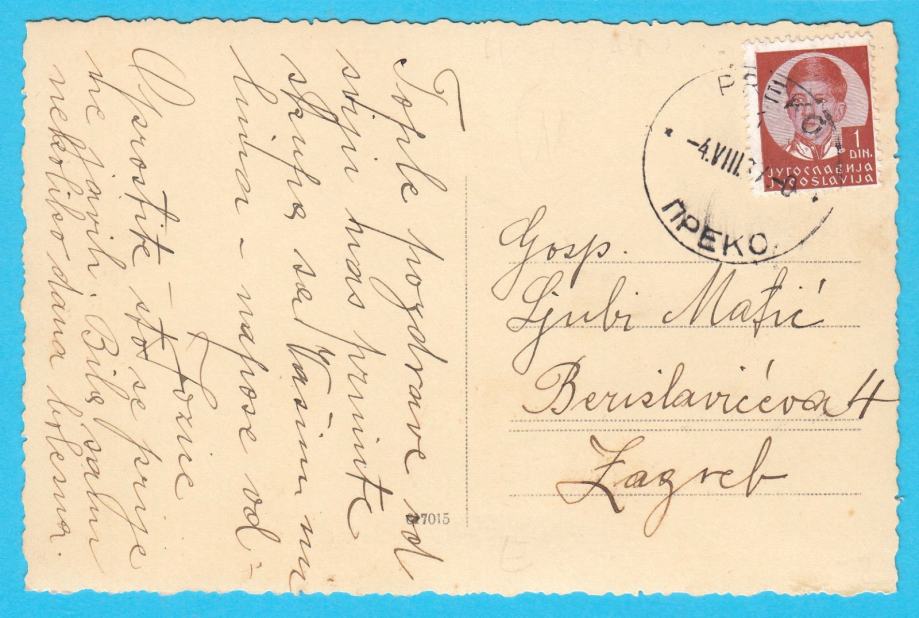 Tople pozdrave od
sviju nas primite
skupa sa Vašim mi
lima – napose od –
Tonie
Oprostite – što se prije
ne javih. Bila sam
nekoliko dana bolesna.
ПРЕКО
-4.VIII.37-8
1
DIN.
ЈУГОСЛАВИЈА
JUGOSLAVIJA
Gosp.
Ljubi Matić
Berislavićeva 4
Zagreb
7015